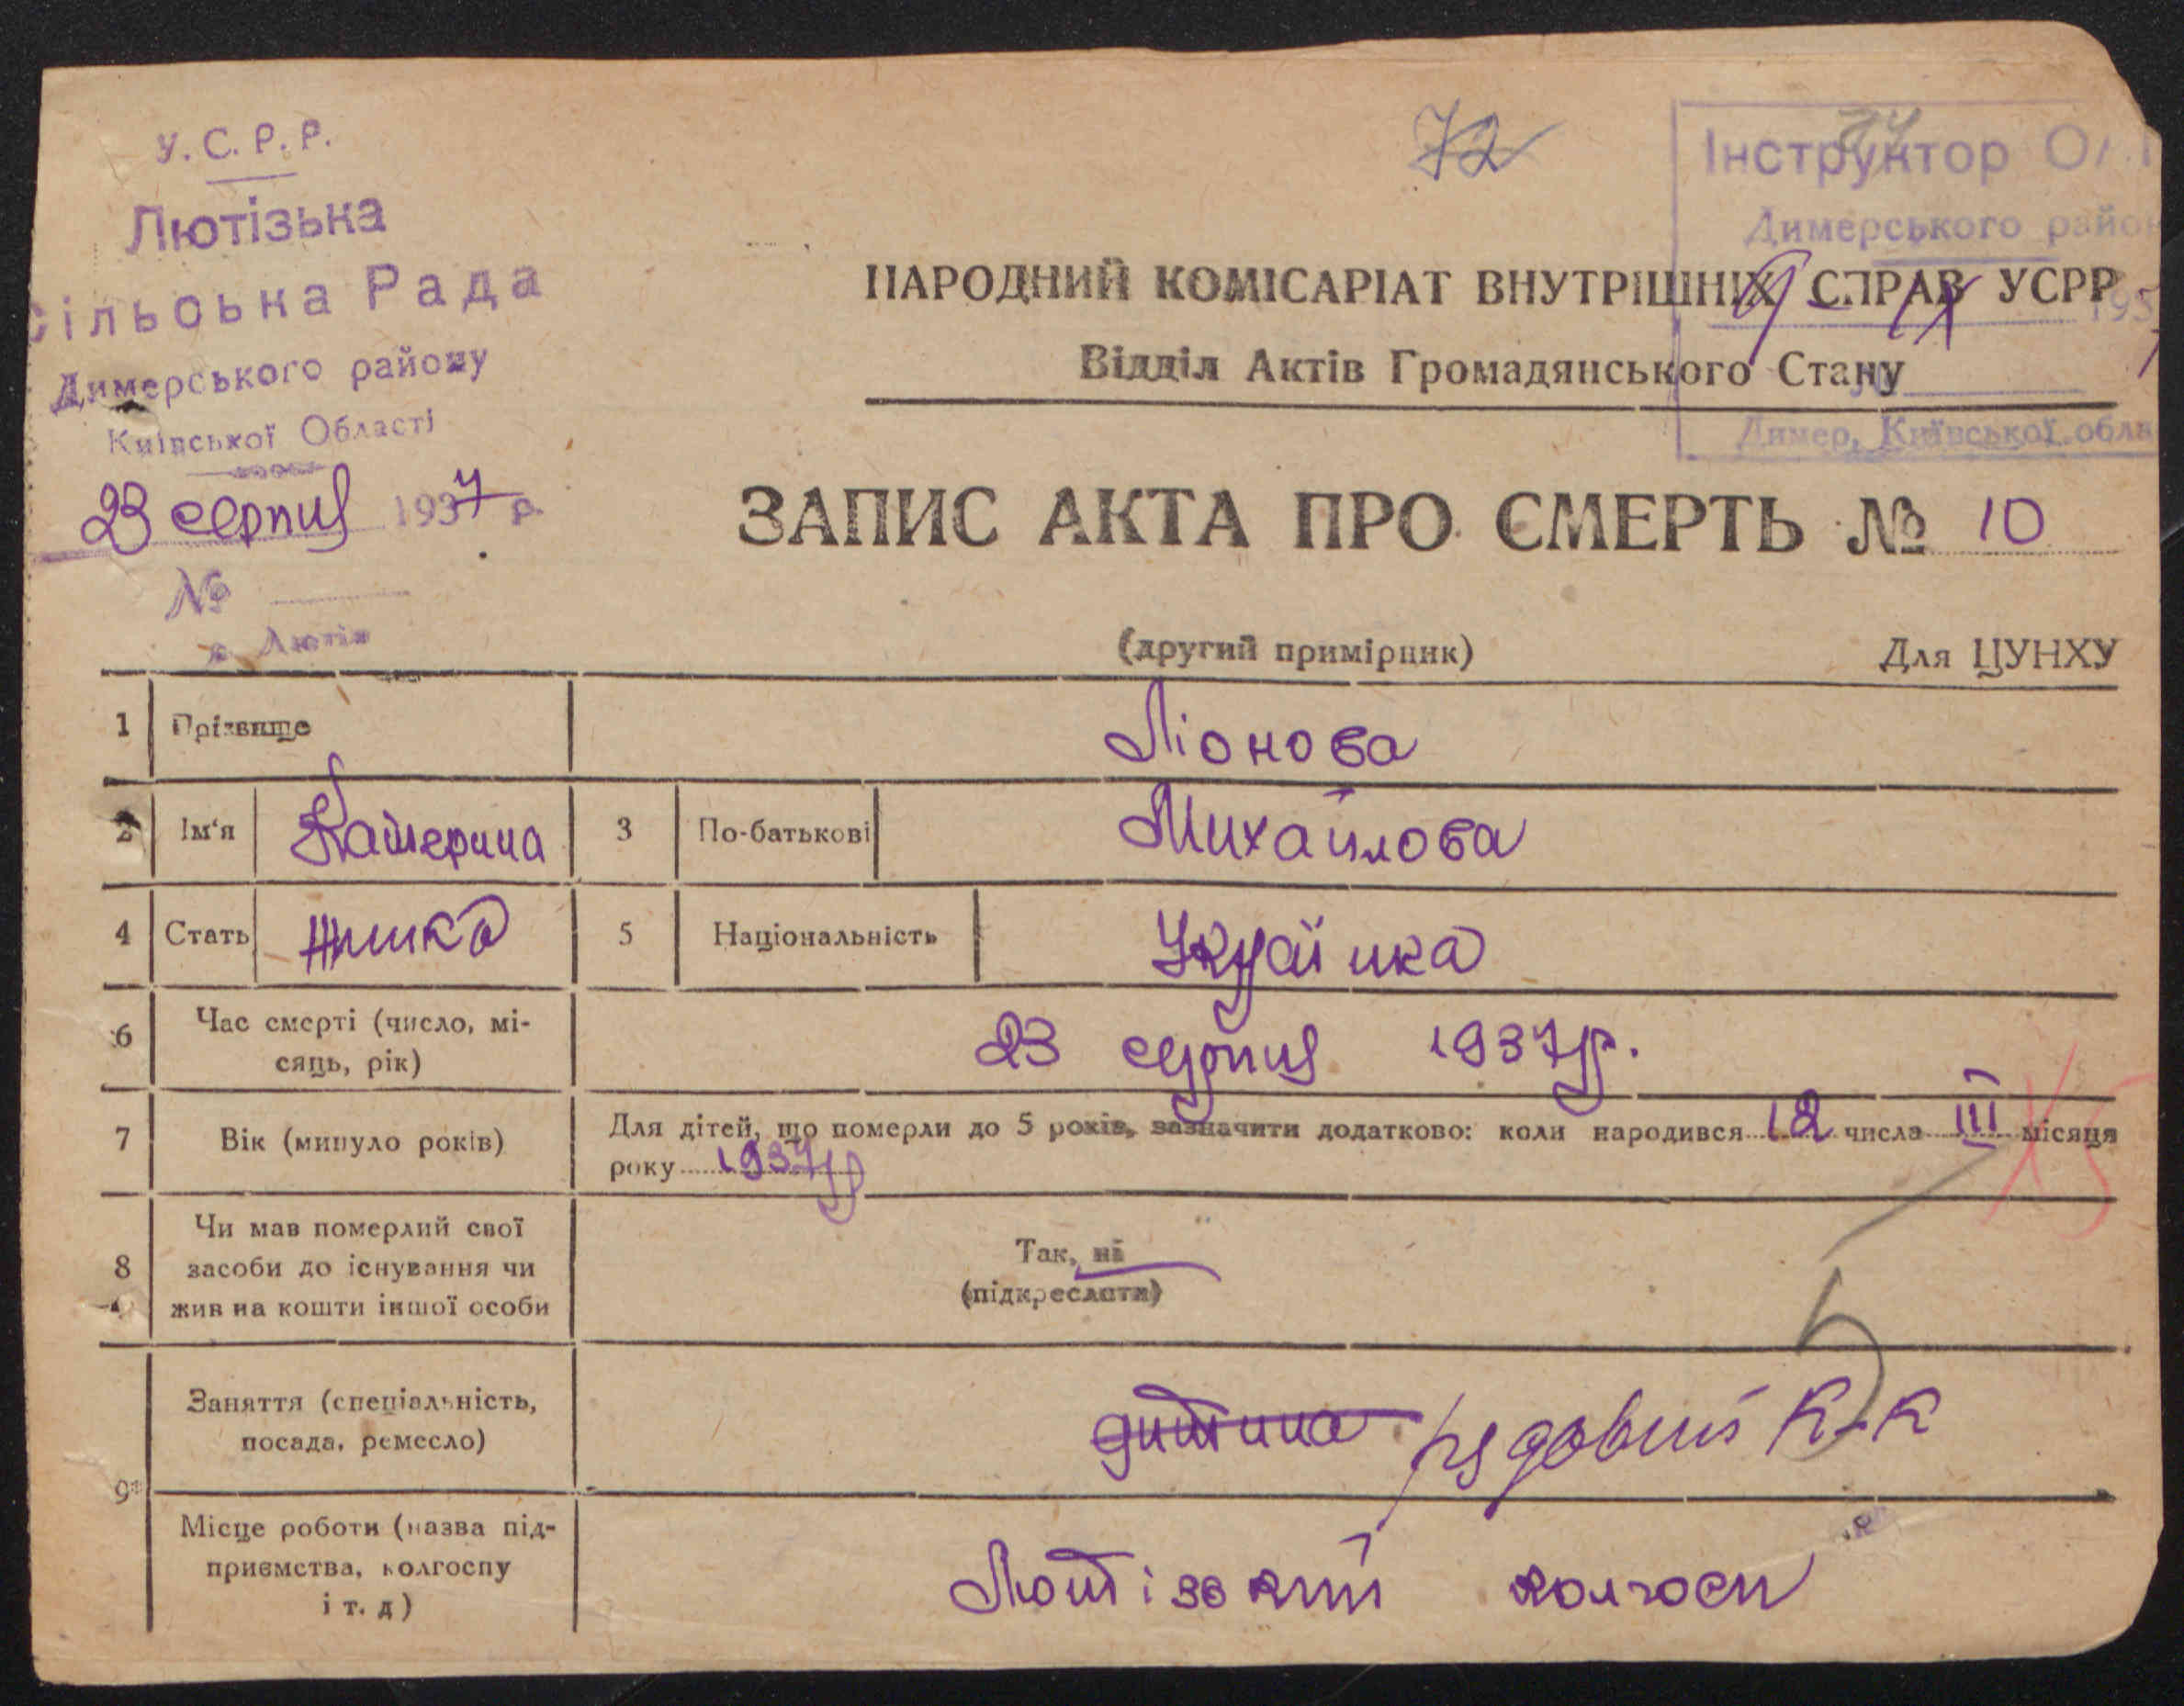 У.С.Р.Р.
Лютізька
Сільська Рада
Димерського району
Київської Області
23 серпня 1937 р.
№
с. Лютіж
72
Інструктор
Димерського район
9 IX 1937
Димер, Київської обла
НАРОДНИЙ КОМІСАРІАТ ВНУТРІШНІХ СПРАВ УСРР
Відділ Актів Громадянського Стану
ЗАПИС АКТА ПРО СМЕРТЬ № 10
(другий примірник) Для ЦУНХУ
1 Прізвище Ліонова
2 Ім'я Катерина 3 По-батькові Михайлова
4 Стать жінка 5 Національність Українка
6 Час смерті (число, мі-
сяць, рік) 23 серпня 1937 р.
7 Вік (минуло років) Для дітей, що померли до 5 років, зазначити додатково: коли народився 12 числа III місяця
року 1937 р
8 Чи мав померлий свої
засоби до існування чи
жив на кошти іншої особи
Так, ні
(підкреслити)
5
9 Заняття (спеціальність,
посада, ремесло) дитина рядовий к-к
Місце роботи (назва під-
приємства, колгоспу
і т. д) Лютізький колгосп